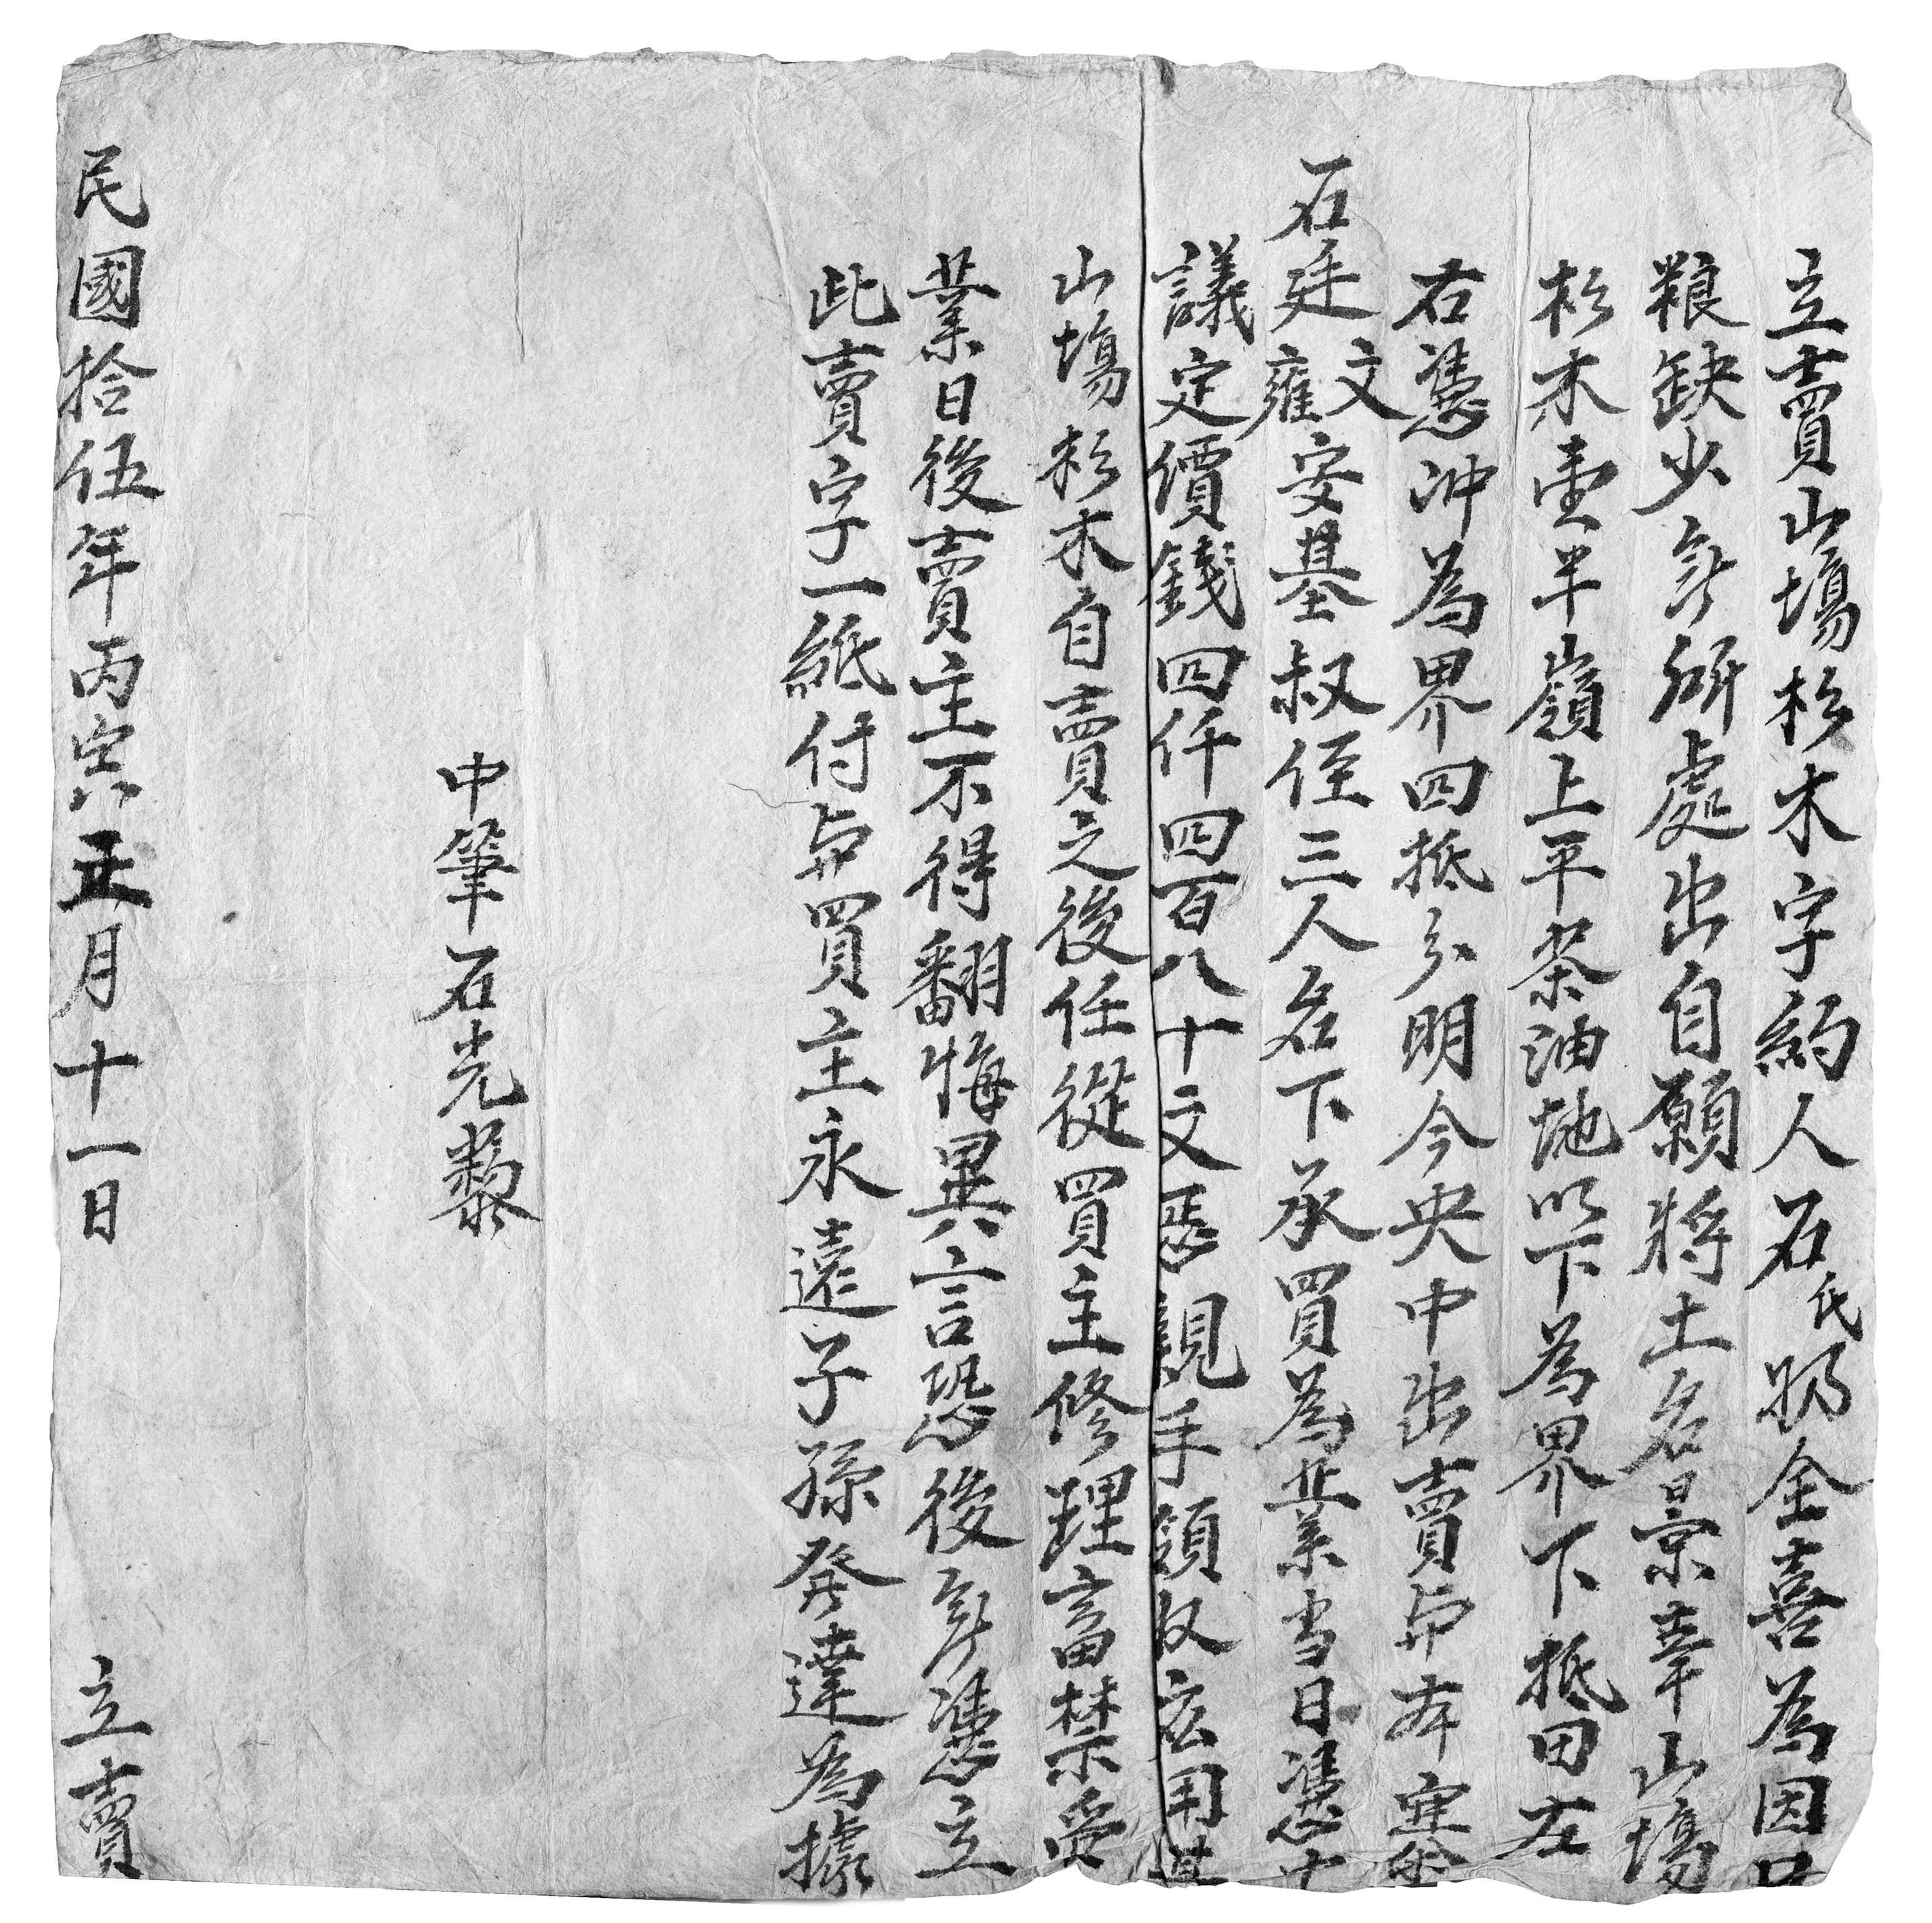 立賣山塲杉木字約人石氏妠金喜為因口
粮缺少無所處出自願將土名景幸山塲
杉木壹半嶺上平茶油地以下為界下抵田左
右憑冲為界四抵分明今央中出賣與本寨
石廷文雍安基叔侄三人名下承買為業当日憑中
議定價錢四仟四百八十文恁親手領収應用其
山塲杉木自賣之後任從買主修理畜禁受
業日後賣主不得翻悔異言恐後無憑立
此賣字一紙付與買主永遠子孫發達為據
中筆石光藜
民國拾伍年丙寅正月十一日 立賣